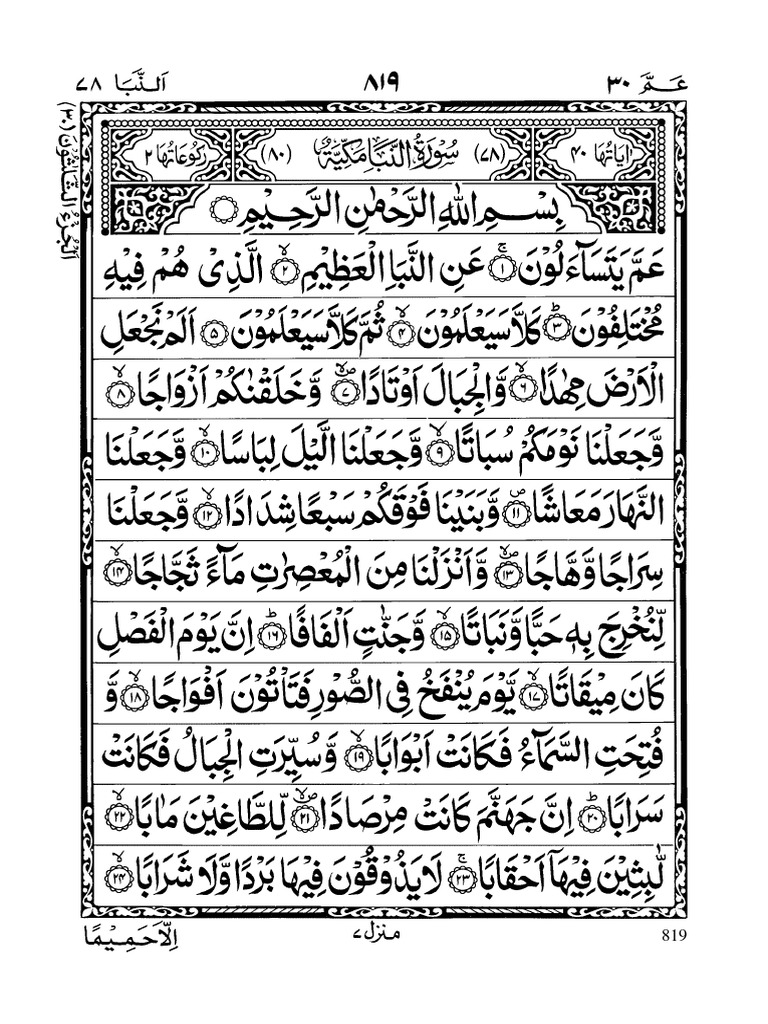 عَمَّ ٣٠ ٨١٩ اَلنَّبَا ٧٨
اٰیَاتُهَا ٤٠ (٧٨) سُوْرَةُ النَّبَاِ مَكِّیَّةٌ (٨٠) رُكُوْعَاتُهَا ٢
اَلْجُزْءُ الثَّلٰثُوْنَ (٣٠)
بِسْمِ اللّٰهِ الرَّحْمٰنِ الرَّحِیْمِ
عَمَّ یَتَسَآءَلُوْنَ ۚ‏﴿١﴾ عَنِ النَّبَاِ الْعَظِیْمِ ۙ‏﴿٢﴾ الَّذِیْ هُمْ فِیْهِ
مُخْتَلِفُوْنَ ؕ‏﴿٣﴾ كَلَّا سَیَعْلَمُوْنَ ۙ‏﴿٤﴾ ثُمَّ كَلَّا سَیَعْلَمُوْنَ ﴿٥﴾ اَلَمْ نَجْعَلِ
الْاَرْضَ مِهٰدًا ۙ‏﴿٦﴾ وَّالْجِبَالَ اَوْتَادًا ۪ۙ‏﴿٧﴾ وَّخَلَقْنٰكُمْ اَزْوَاجًا ۙ‏﴿٨﴾
وَّجَعَلْنَا نَوْمَكُمْ سُبَاتًا ۙ‏﴿٩﴾ وَّجَعَلْنَا الَّیْلَ لِبَاسًا ۙ‏﴿١٠﴾ وَّجَعَلْنَا
النَّهَارَ مَعَاشًا ۪‏﴿١١﴾ وَّبَنَیْنَا فَوْقَكُمْ سَبْعًا شِدَادًا ۙ‏﴿١٢﴾ وَّجَعَلْنَا
سِرَاجًا وَّهَّاجًا ۪ۙ‏﴿١٣﴾ وَّاَنْزَلْنَا مِنَ الْمُعْصِرٰتِ مَآءً ثَجَّاجًا ۙ‏﴿١٤﴾
لِّنُخْرِجَ بِهٖ حَبًّا وَّنَبَاتًا ۙ‏﴿١٥﴾ وَّجَنّٰتٍ اَلْفَافًا ؕ‏﴿١٦﴾ اِنَّ یَوْمَ الْفَصْلِ
كَانَ مِیْقَاتًا ۙ‏﴿١٧﴾ یَّوْمَ یُنْفَخُ فِی الصُّوْرِ فَتَاْتُوْنَ اَفْوَاجًا ۙ‏﴿١٨﴾ وَّ
فُتِحَتِ السَّمَآءُ فَكَانَتْ اَبْوَابًا ۙ‏﴿١٩﴾ وَّسُیِّرَتِ الْجِبَالُ فَكَانَتْ
سَرَابًا ؕ‏﴿٢٠﴾ اِنَّ جَهَنَّمَ كَانَتْ مِرْصَادًا ۪ۙ‏﴿٢١﴾ لِّلطَّاغِیْنَ مَاٰبًا ۙ‏﴿٢٢﴾
لّٰبِثِیْنَ فِیْهَاۤ اَحْقَابًا ۚ‏﴿٢٣﴾ لَا یَذُوْقُوْنَ فِیْهَا بَرْدًا وَّلَا شَرَابًا ۙ‏﴿٢٤﴾
819 منزل ٧ اِلَّا حَمِیْمًا